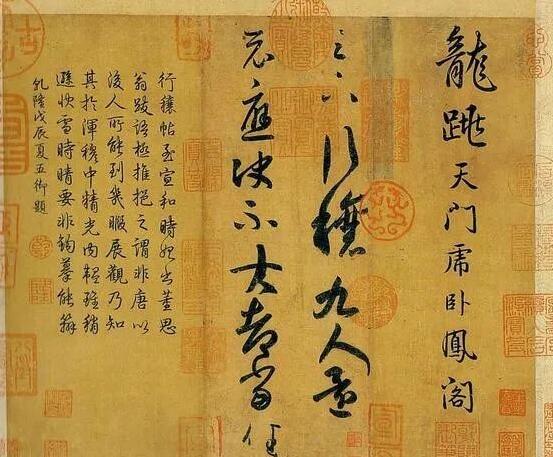 龍跳天門虎臥鳳閣
足下行穰九人還
示應決不大都當任
行穰帖至宣和時始出董思
翁跋語極推挹之謂非唐以
後人所能到幾暇展觀乃知
其於渾穆中精光內韞雖稍
遜快雪時晴要非鉤摹能辦
乾隆戊辰夏五御題